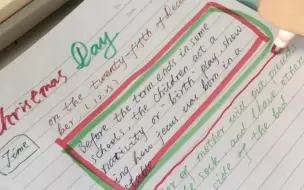 Christmas Day
on the twenty fifth of Decem
ber (12.25)
Time
Before the term ends in some
schools, the children act a
nativity or birth play, show
ing how Jesus was born in a
of mother will put
the sock and leave others
side of the bed